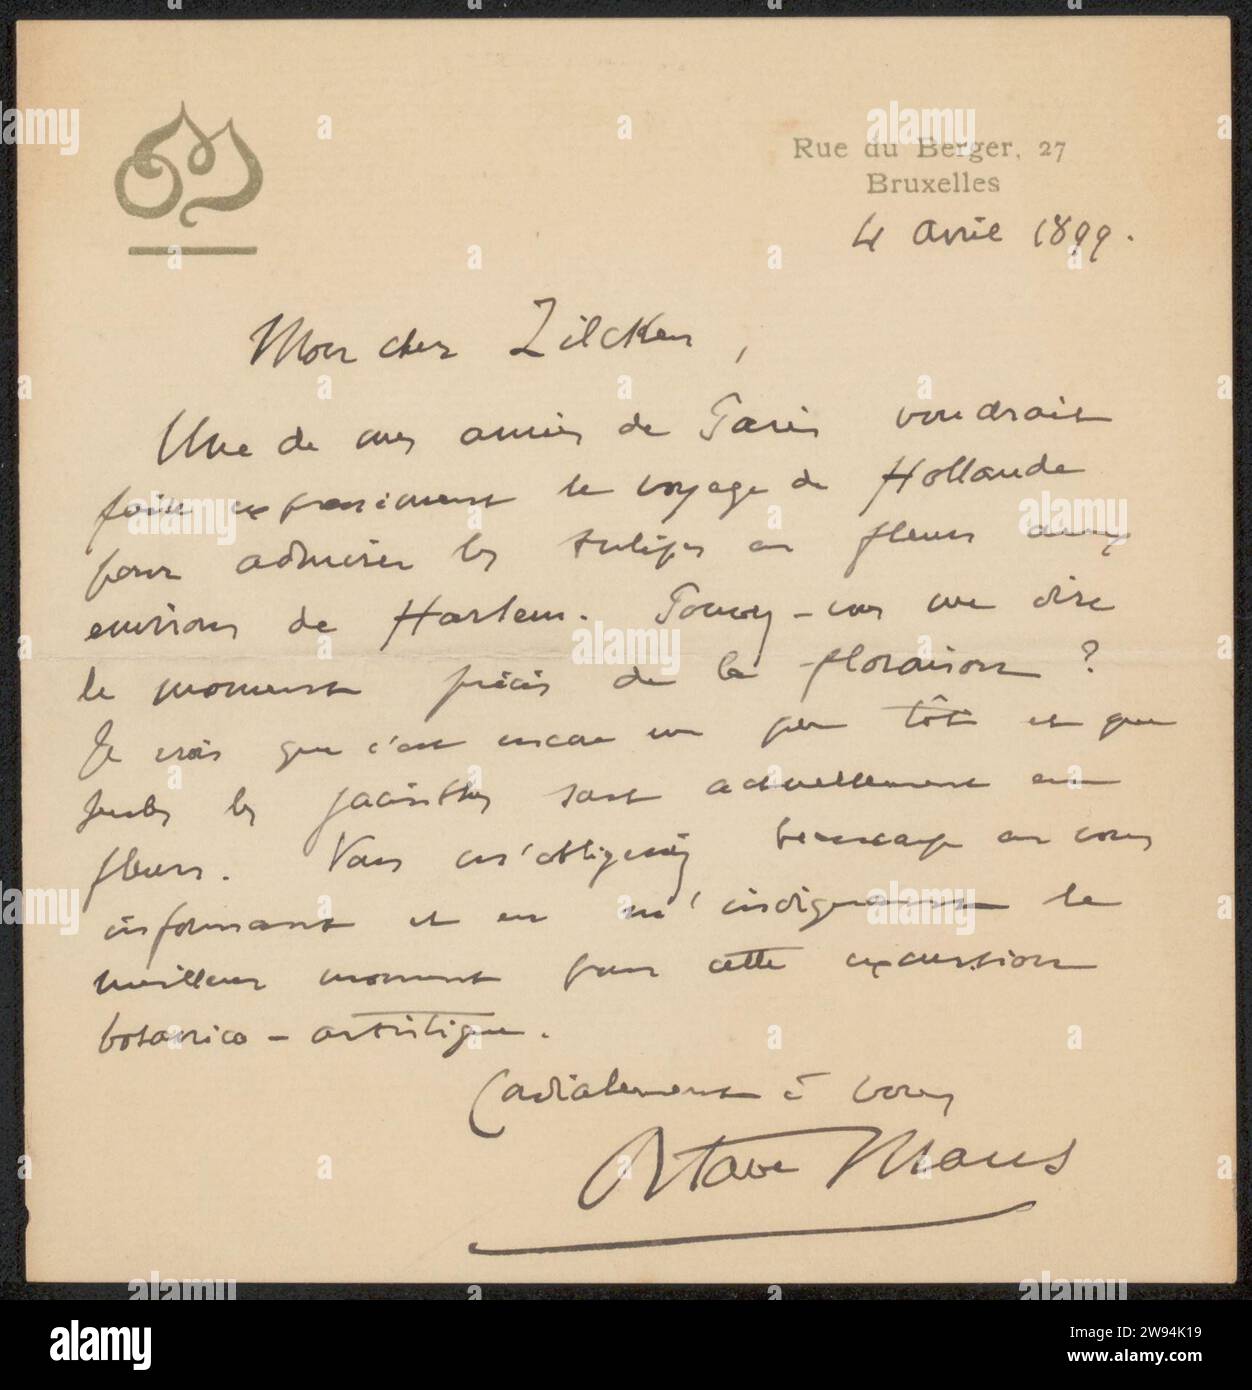 Rue du Berger, 27
Bruxelles
4 avril 1899.
Mon cher Zilcken,
Une de mes amies de Paris voudrait
faire expressément le voyage de Hollande
pour admirer les tulipes en fleurs aux
environs de Harlem. Pouvez-vous me dire
le moment précis de la floraison ?
Je crois que c'est encore un peu tôt et que
seules les jacinthes sont actuellement en
fleurs. Vous m'obligeriez beaucoup en vous
informant et en m'indiquant le
meilleur moment pour cette excursion
botanico-artistique.
Cordialement à vous
Octave Maus
alamy
Image ID: 2W94K19
www.alamy.com